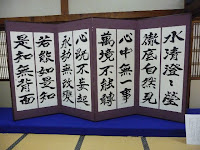 水清澄々瑩
徹底自然見
心中無一事
萬境不能轉
心既不妄起
永劫無改變
若能如是知
是知無背面